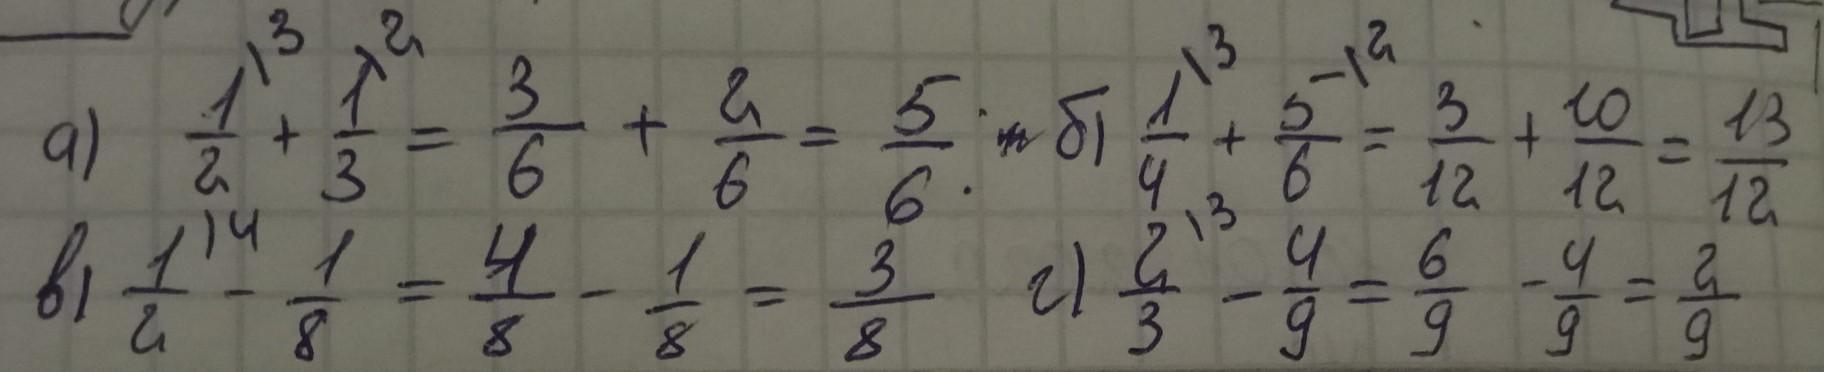 а) 1/2 \3 + 1/3 \2 = 3/6 + 2/6 = 5/6. б) 1/4 \3 + 5/6 \2 = 3/12 + 10/12 = 13/12
в) 1/2 \4 - 1/8 = 4/8 - 1/8 = 3/8 г) 2/3 \3 - 4/9 = 6/9 - 4/9 = 2/9